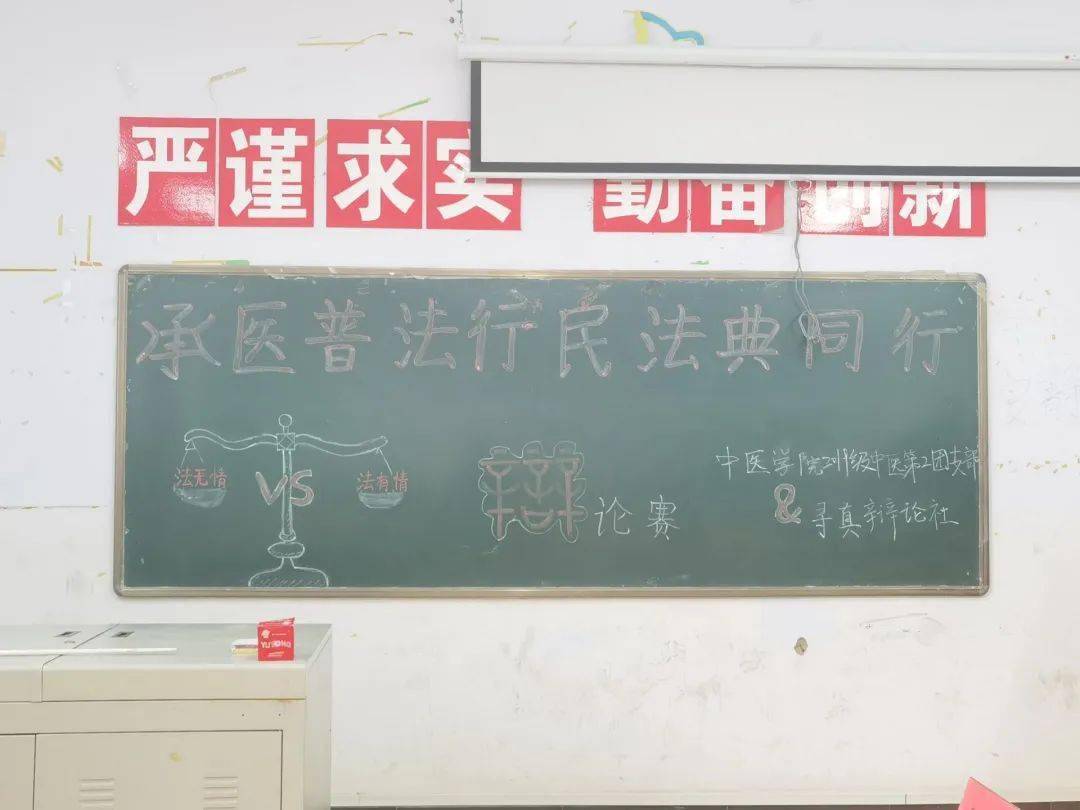 严谨求实 勤奋创新
承医普法行民法典同行
法无情 VS 法有情
辩论赛
中医学院2011级中医第2团支部
& 寻真辩论社
YUTONG